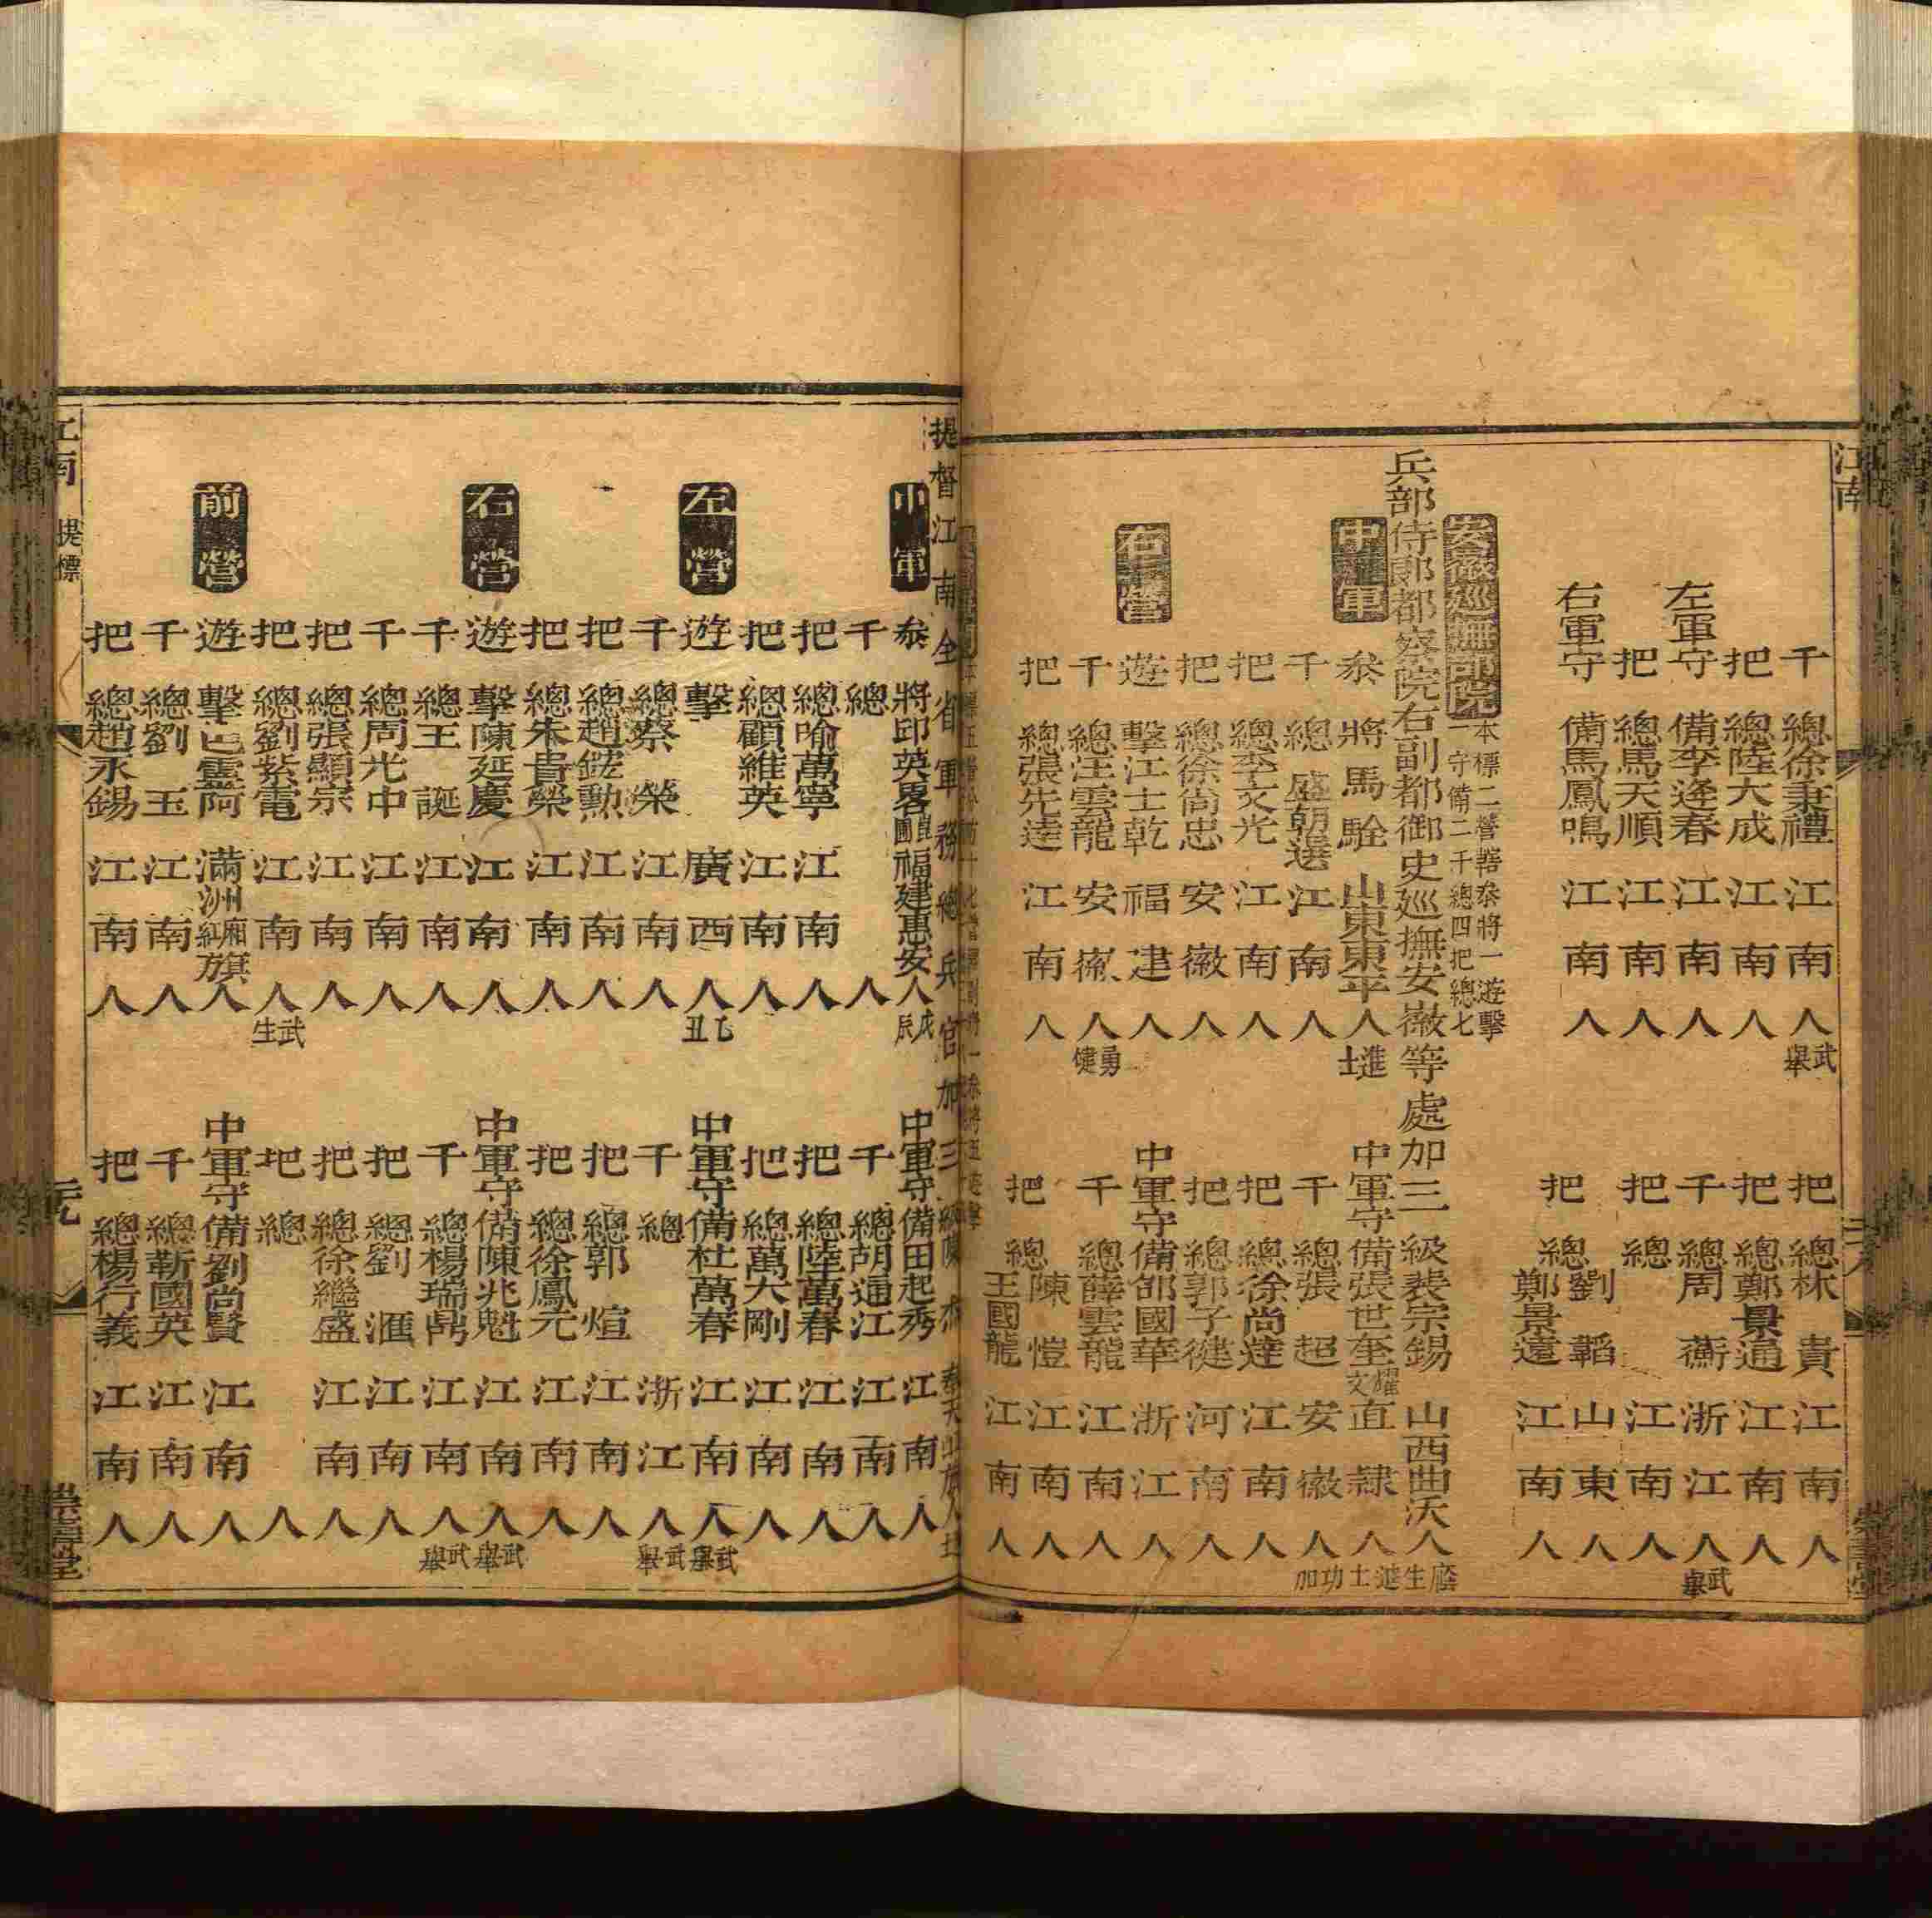 江南
千總徐秉禮江南人武舉
把總林貴江南人
把總陸大成江南人
把總鄭景通江南人
左軍守備李逢春江南人
千總周蘅浙江人武舉
把總馬天順江南人
把總江南人
右軍守備馬鳳鳴江南人
把總劉韜山東人
鄭景遠江南人
安徽廵撫部院
本標二營轄叅將一遊擊
一守備二千總四把總七
兵部侍郎都察院右副都御史廵撫安徽等處加三級裴宗錫山西曲沃人
中軍
叅將馬駩山東東平人進士
中軍守備張世奎耀文直隸人
千總盛朝選江南人
千總張超安徽人
把總李文光江南人
把總徐尚達江南人
把總徐尚忠安徽人
把總郭子健河南人
右營
遊擊江士乾福建人
中軍守備邵國華浙江人
千總汪雲龍安徽人勇健
千總薛雲龍江南人
把總張先達江南人
把總陳愷江南人
王國龍江南人
提督江南全省軍務總兵官加三級陳杰
中軍
叅將邱英畧崑圃福建惠安人戊辰
中軍守備田起秀江南人
千總人
千總胡通江江南人
把總喻萬寧江南人
把總陸萬春江南人
把總顧維英江南人
把總萬大剛江南人
左營
遊擊廣西人乙丑
中軍守備杜萬春江南人武舉
千總蔡榮江南人
千總浙江人武舉
把總趙鋐勲江南人
把總郭煊江南人
把總朱貴榮江南人
把總徐鳳元江南人
右營
遊擊陳延慶江南人
中軍守備陳兆魁江南人武舉
千總王誕江南人
千總楊瑞鼎江南人武舉
千總周光中江南人
把總劉滙江南人
把總張顯宗江南人
把總徐繼盛江南人
把總劉紫電江南人武生
把總人
前營
遊擊巴靈阿滿洲廂紅旗方人
中軍守備劉尚賢江南人
千總劉玉江南人
千總靳國英江南人
把總趙永錫江南人
把總楊行義江南人
江南
提標